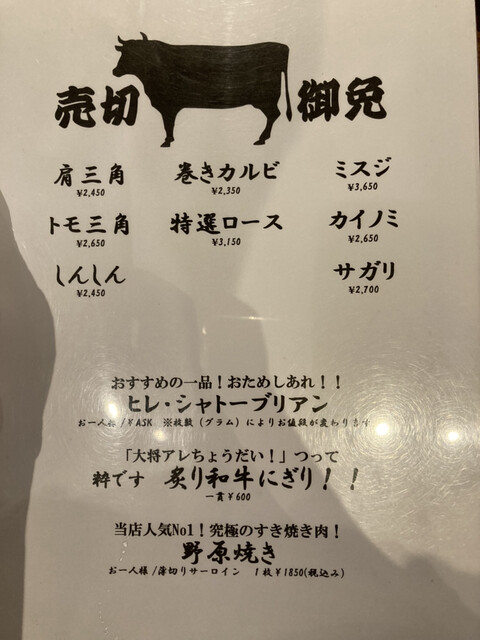 売切 御免
肩三角 巻きカルビ ミスジ
¥2,450 ¥2,350 ¥3,650
トモ三角 特選ロース カイノミ
¥2,650 ¥3,150 ¥2,650
しんしん サガリ
¥2,450 ¥2,700
おすすめの一品！おためしあれ！！
ヒレ・シャトーブリアン
お一人様/¥ASK ※枚数（グラム）によりお値段が変わります
「大将アレちょうだい！」つって
粋です 炙り和牛にぎり！！
一貫¥600
当店人気No1！究極のすき焼き肉！
野原焼き
お一人様/薄切りサーロイン 1枚¥1850(税込み)